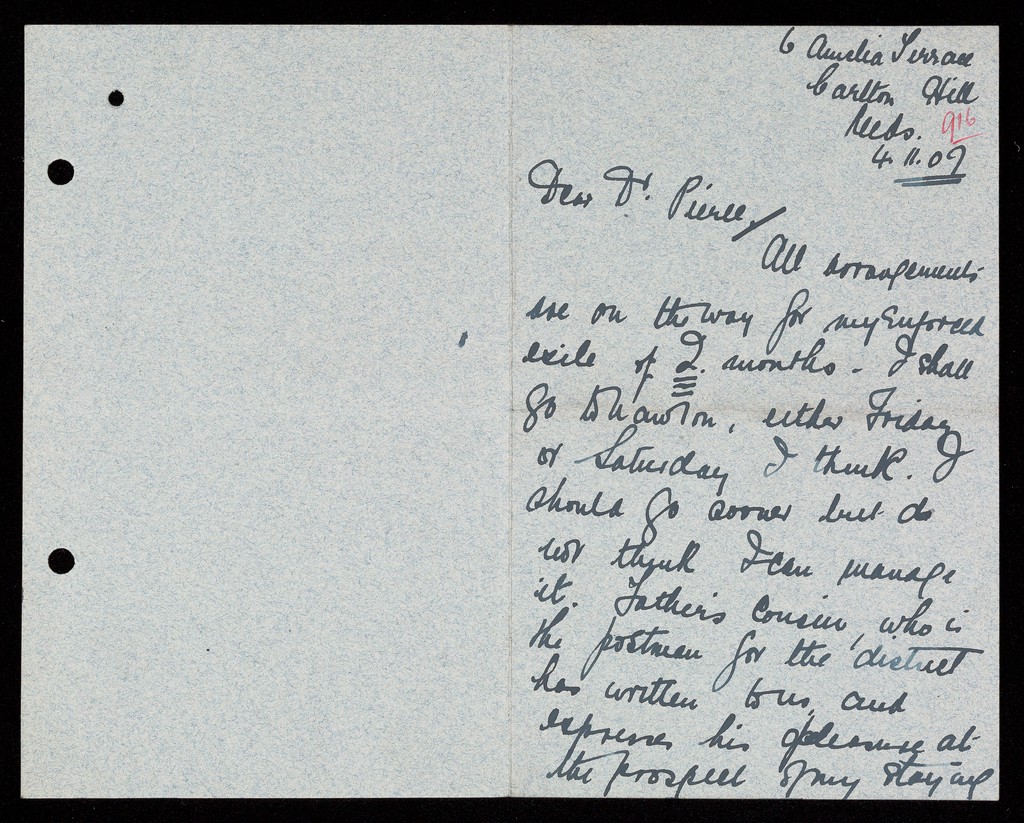 6 Amelia Terrace
Carlton Hill
Leeds. 916
4.11.09
Dear Dr. Pierce,/
All arrangements
are on the way for my Enforced
exile of 2. months - I shall
go to , either Friday
or Saturday I think. I
should go sooner but do
not think I can manage
it. Father's cousin, who is
the postman for the district
has written to us, and
expresses his pleasure at
the prospect of my staying